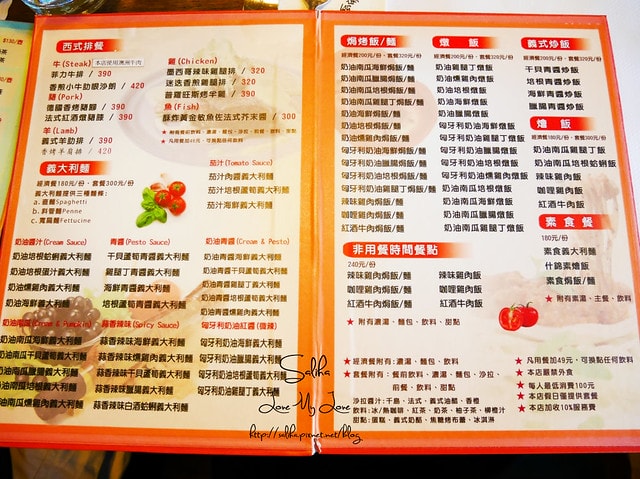 西式排餐
牛(Steak) 本店使用澳洲牛肉
菲力牛排 / 390
香煎小牛肋眼沙朗 / 420
豬(Pork)
德國香烤豬腳 / 390
法式紅酒燉豬膝 / 390
羊(Lamb)
義式羊肋排 / 390
香烤羊肩排 / 420
雞(Chicken)
墨西哥辣味雞腿排 / 320
迷迭香煎雞腿排 / 320
普羅旺斯烤半雞 / 390
魚(Fish)
酥炸黃金敏魚佐法式芥末醬 / 300
義大利麵
經濟餐180元/份‧套餐300元/份
義大利麵提供三種麵條:
a.直麵Spaghetti
b.斜管麵Penne
c.寬扁麵Fettucine
茄汁(Tomato Sauce)
茄汁肉醬義大利麵
茄汁培根蘑菇義大利麵
茄汁海鮮義大利麵
奶油醬汁(Cream Sauce)
奶油培根蛤蜊義大利麵
奶油培根蛋汁義大利麵
奶油燻雞義大利麵
奶油海鮮義大利麵
青醬(Pesto Sauce)
干貝蘆筍青醬義大利麵
雞腿丁青醬義大利麵
海鮮青醬義大利麵
培根蘆筍青醬義大利麵
奶油青醬(Cream & Pesto)
奶油海鮮青醬義大利麵
奶油青醬干貝蘆筍義大利麵
奶油青醬雞腿丁義大利麵
奶油青醬培根蘆筍義大利麵
奶油南瓜(Cream & Pumpkin)
奶油南瓜海鮮義大利麵
奶油南瓜干貝蘆筍義大利麵
奶油南瓜雞腿丁義大利麵
奶油南瓜培根義大利麵
奶油南瓜燻雞肉義大利麵
蒜香辣味(Spicy Sauce)
蒜香辣味海鮮義大利麵
蒜香辣味燻雞肉義大利麵
蒜香辣味培根義大利麵
蒜香辣味臘腸義大利麵
蒜香辣味白酒蛤蜊義大利麵
匈牙利奶油紅醬(微辣)
匈牙利奶油海鮮義大利麵
匈牙利奶油臘腸義大利麵
匈牙利奶油培根義大利麵
匈牙利奶油雞丁義大利麵
焗烤飯/麵
經濟餐200元/份‧套餐320元/份
奶油南瓜海鮮焗飯/麵
奶油南瓜臘腸焗飯/麵
奶油南瓜培根焗飯/麵
奶油南瓜雞腿丁焗飯/麵
奶油海鮮焗飯/麵
奶油培根焗飯/麵
奶油燻雞肉焗飯/麵
匈牙利奶油海鮮焗飯/麵
匈牙利奶油臘腸焗飯/麵
匈牙利奶油培根焗飯/麵
匈牙利奶油雞腿丁焗飯/麵
辣味雞肉焗飯/麵
咖哩雞肉焗飯/麵
紅酒牛肉焗飯/麵
燉 飯
經濟餐200元/份‧套餐320元/份
奶油雞腿丁燉飯
奶油燻雞肉燉飯
奶油培根燉飯
奶油海鮮燉飯
匈牙利奶油海鮮燉飯
匈牙利奶油臘腸燉飯
匈牙利奶油培根燉飯
匈牙利奶油雞腿丁燉飯
奶油南瓜培根燉飯
奶油南瓜海鮮燉飯
奶油南瓜臘腸燉飯
奶油南瓜雞腿丁燉飯
義式炒飯
經濟餐200元/份‧套餐320元/份
干貝青醬炒飯
培根青醬炒飯
海鮮青醬炒飯
臘腸青醬炒飯
燴 飯
經濟餐180元/份‧套餐300元/份
奶油雞腿丁飯
奶油培根蛤蜊飯
奶油燻雞肉飯
辣味雞肉飯
咖哩雞肉飯
紅酒牛肉飯
素食餐
180元/份
素食義大利麵
什錦素燴飯
素食焗飯/麵
★ 附有素湯、主餐、飲料
非用餐時間餐點
240元/份
辣味雞肉焗飯/麵 辣味雞肉飯
咖哩雞肉焗飯/麵 咖哩雞肉飯
紅酒牛肉焗飯/麵 紅酒牛肉飯
★ 附有濃湯、麵包、飲料、甜點
★ 經濟餐附有:濃湯、麵包、飲料
★ 套餐附有:餐前飲料、濃湯、麵包、沙拉、
前餐、飲料、甜點
沙拉醬汁:千島、法式、義式油醋、香橙
飲料:冰/熱咖啡、紅茶、奶茶、柚子茶、柳橙汁
甜點:蛋糕、義式奶酪、焦糖烤布蕾、冰淇淋
★ 凡用餐加49元,可換點任何飲料
★ 本店嚴禁外食
★ 每人最低消費100元
★ 本店假日僅提供套餐
★ 本店加收10%服務費
Saliha
Love My Love
http://saliha.pixnet.net/blog